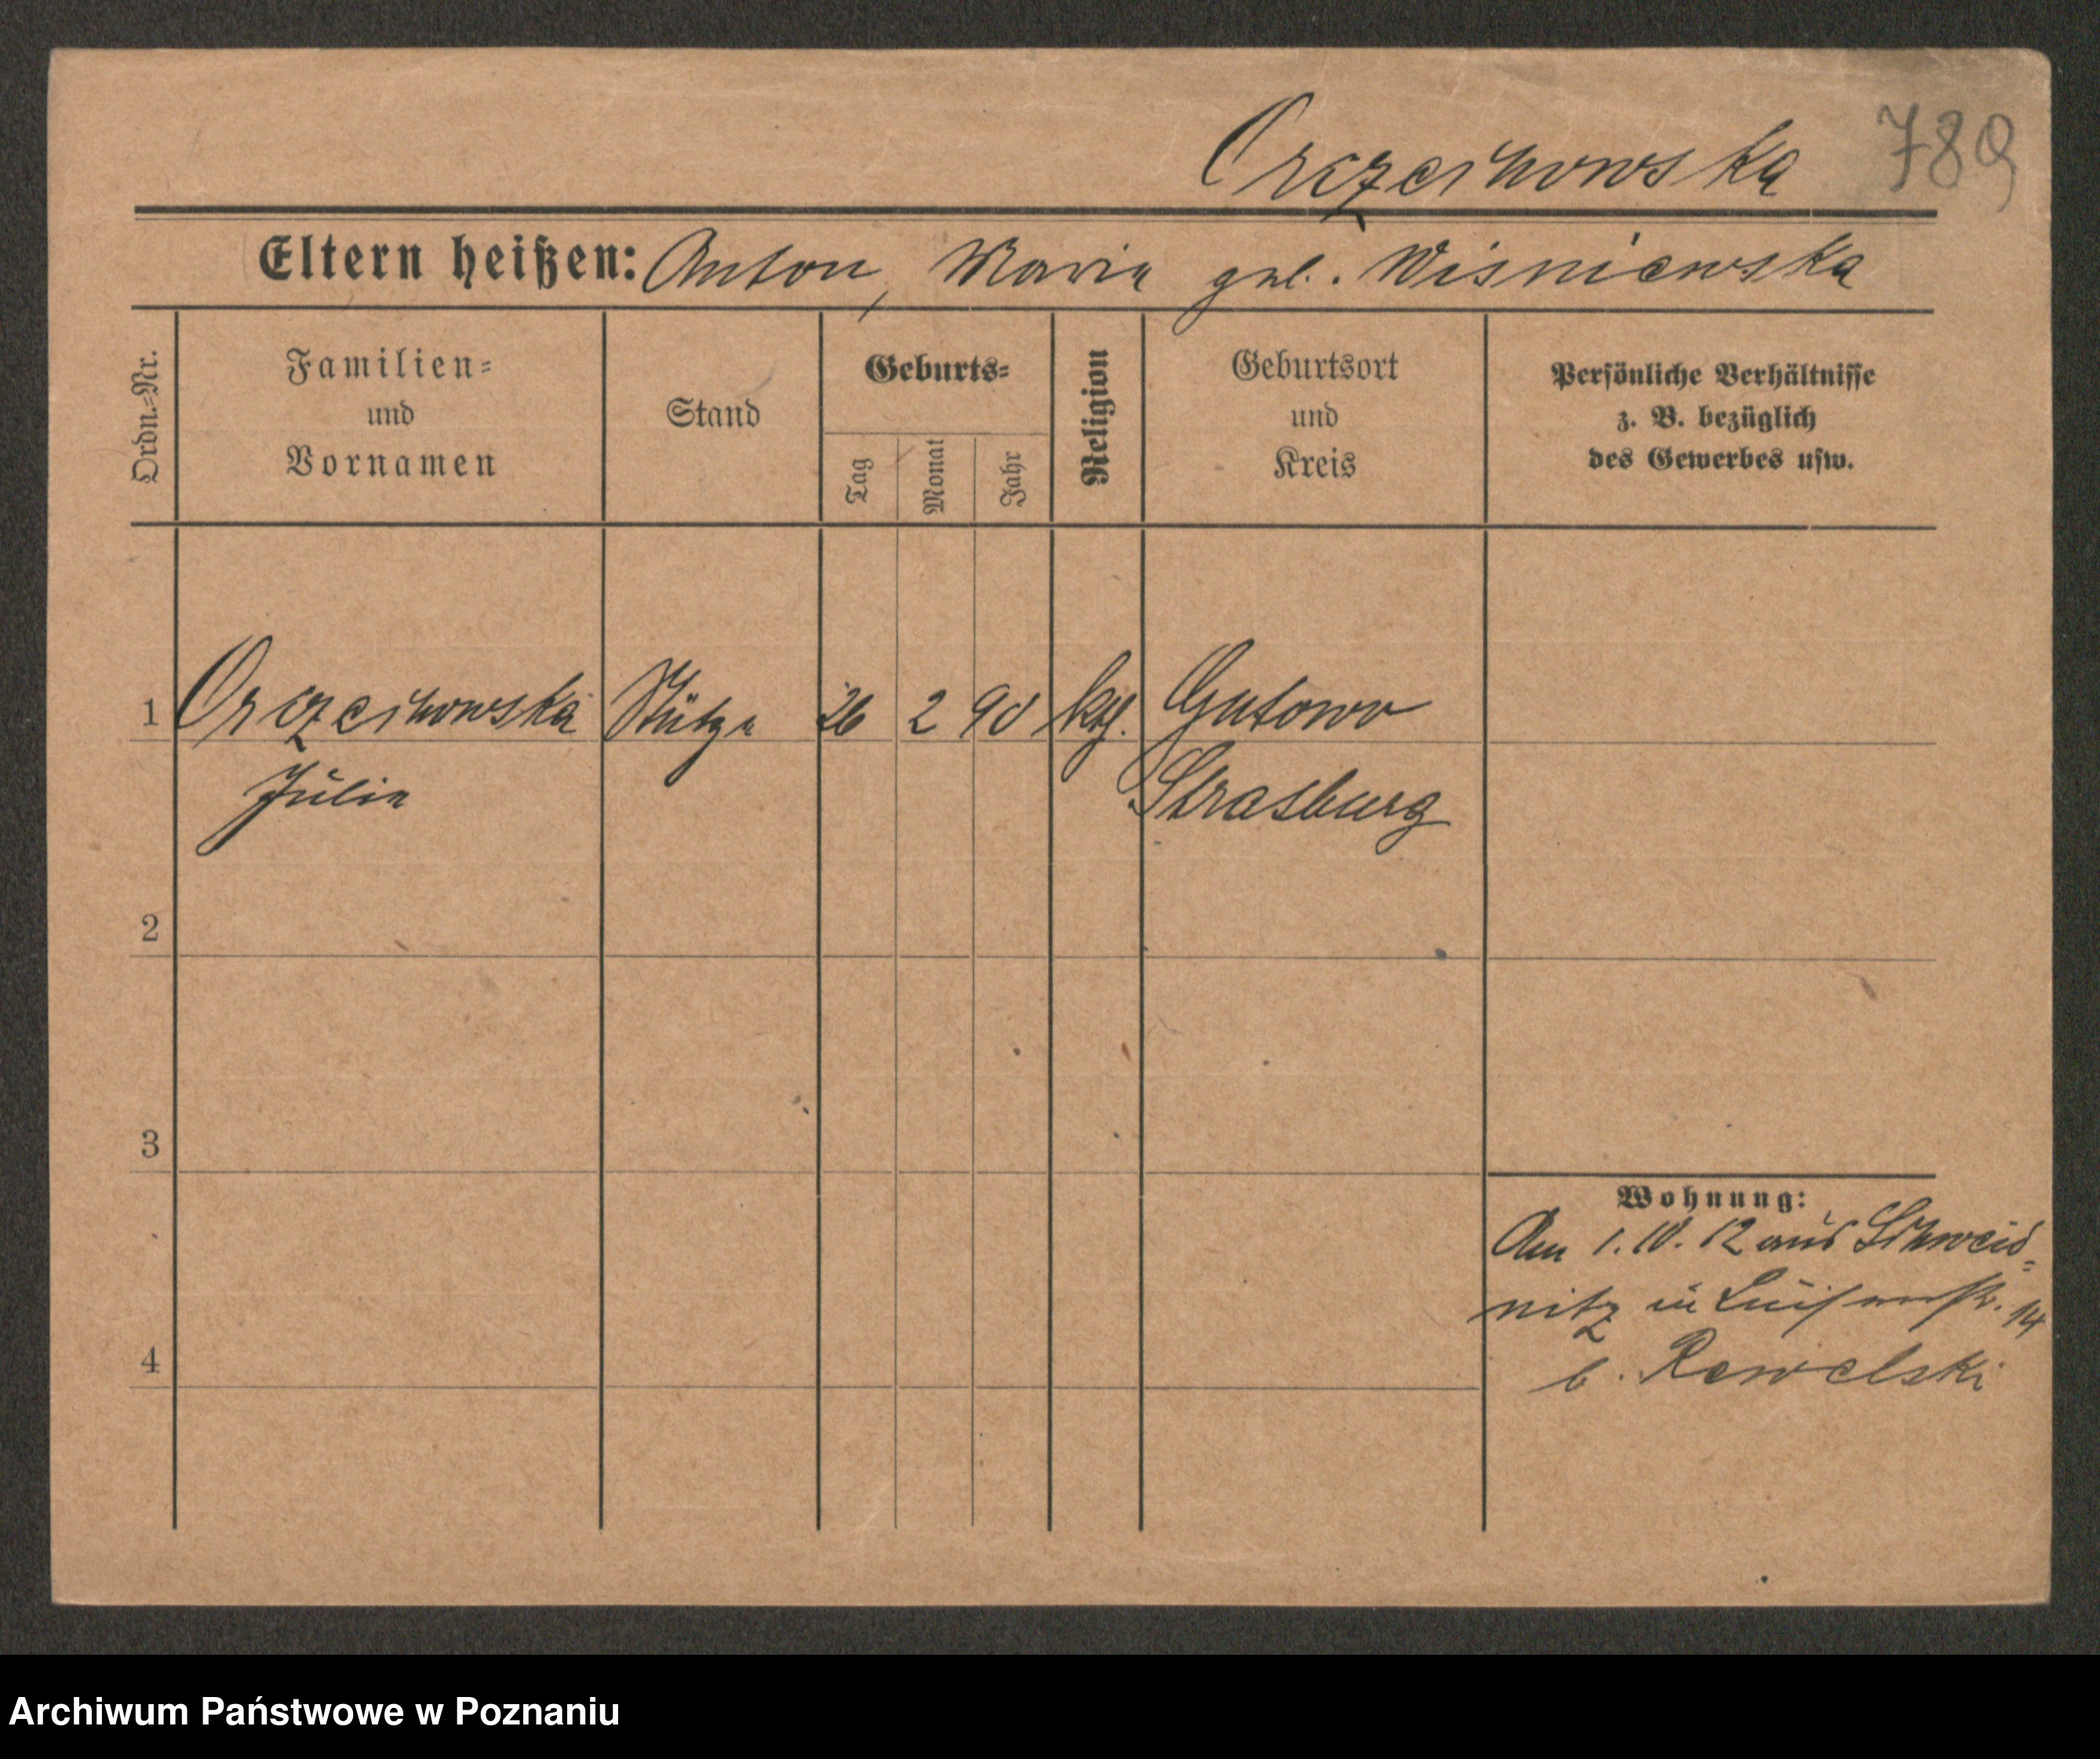 Orczechowska 789
Eltern heißen: Anton, Maria geb. Wisniewska
Ordn.-Nr.
Familien-
und
Vornamen
Stand
Geburts-
Tag
Monat
Jahr
Religion
Geburtsort
und
Kreis
Persönliche Verhältnisse
z. B. bezüglich
des Gewerbes usw.
1 Orczechowska Stütze 26 2 90 kth. Gutowo
Julia Strasburg
2
3
4
Wohnung:
Am 1.10.12 aus Schweid-
nitz in Luisenstr. 14
b. Rewelski
Archiwum Państwowe w Poznaniu